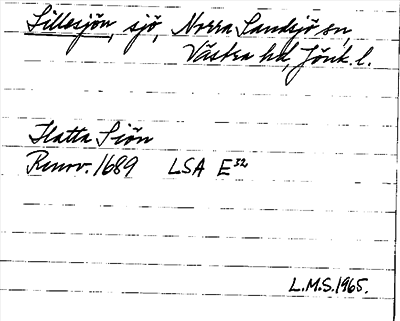 Lillesjön, sjö, Norra Sandsjö sn,
Västra hd, Jönk. l.
Hatta Siön
Renov. 1689 LSA E32
L.M.S. 1965.